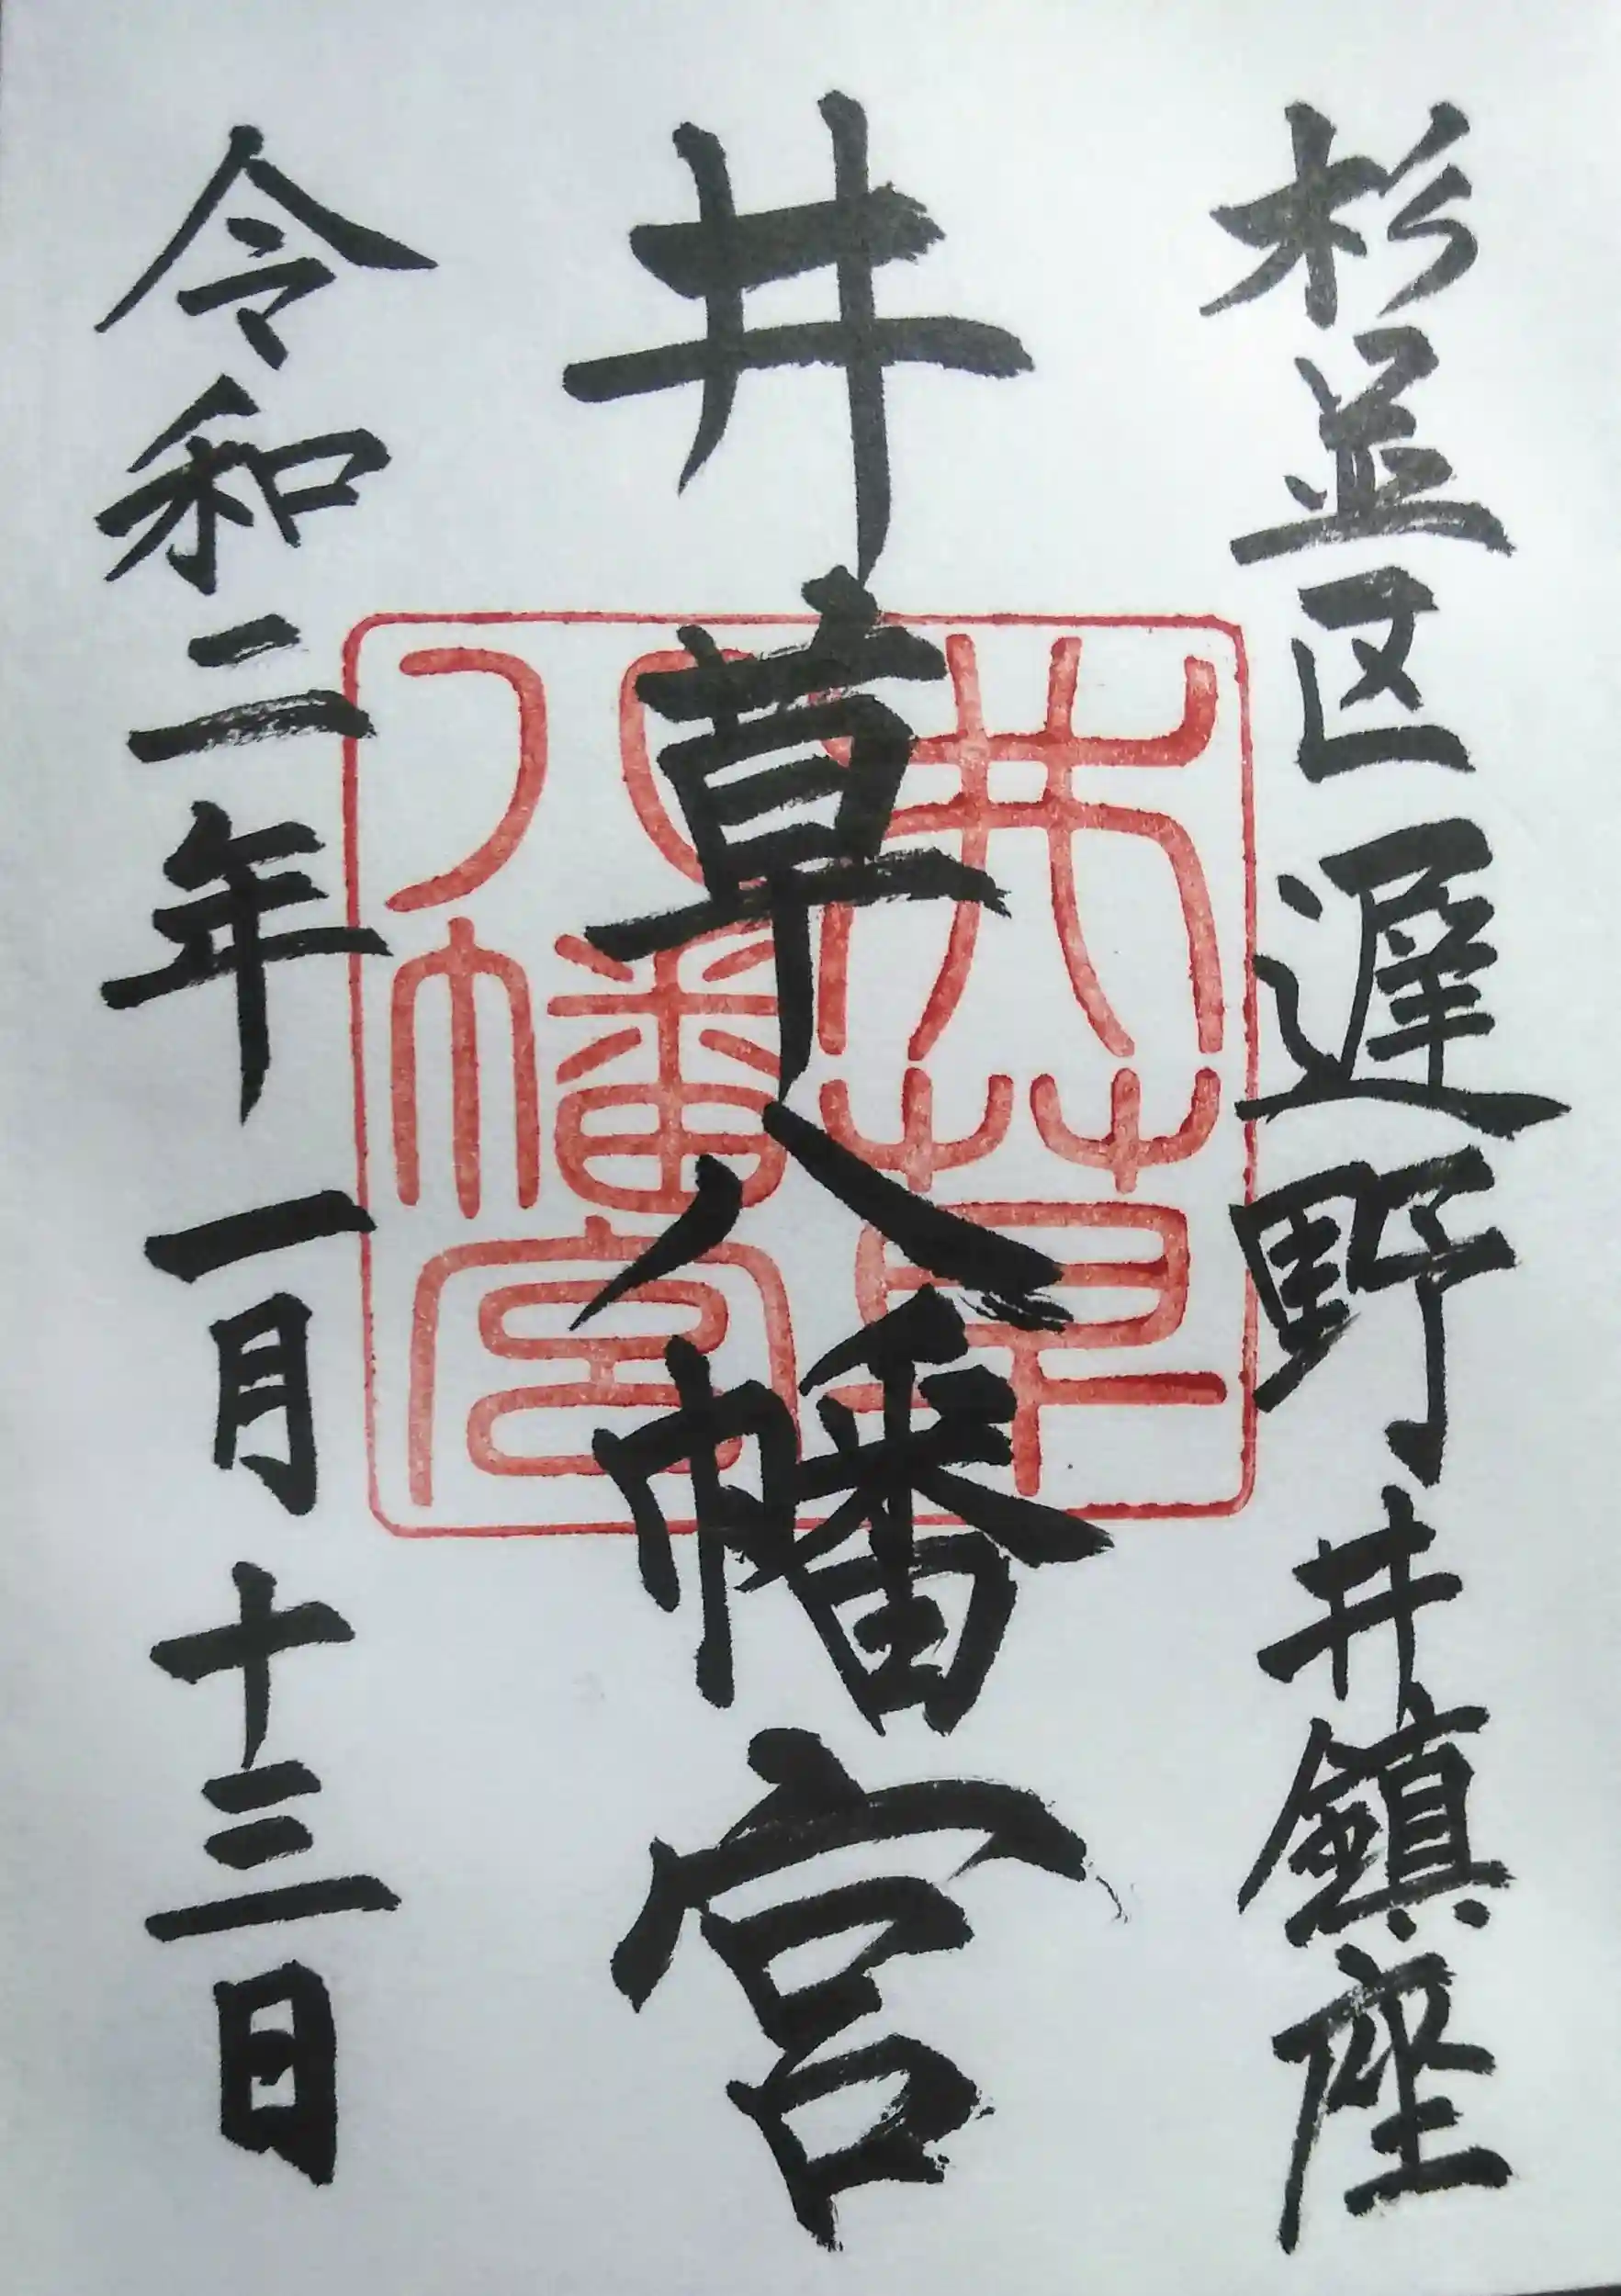 杉並区遅野井鎮座
井草八幡宮
井草
八幡宮
令和二年一月十三日